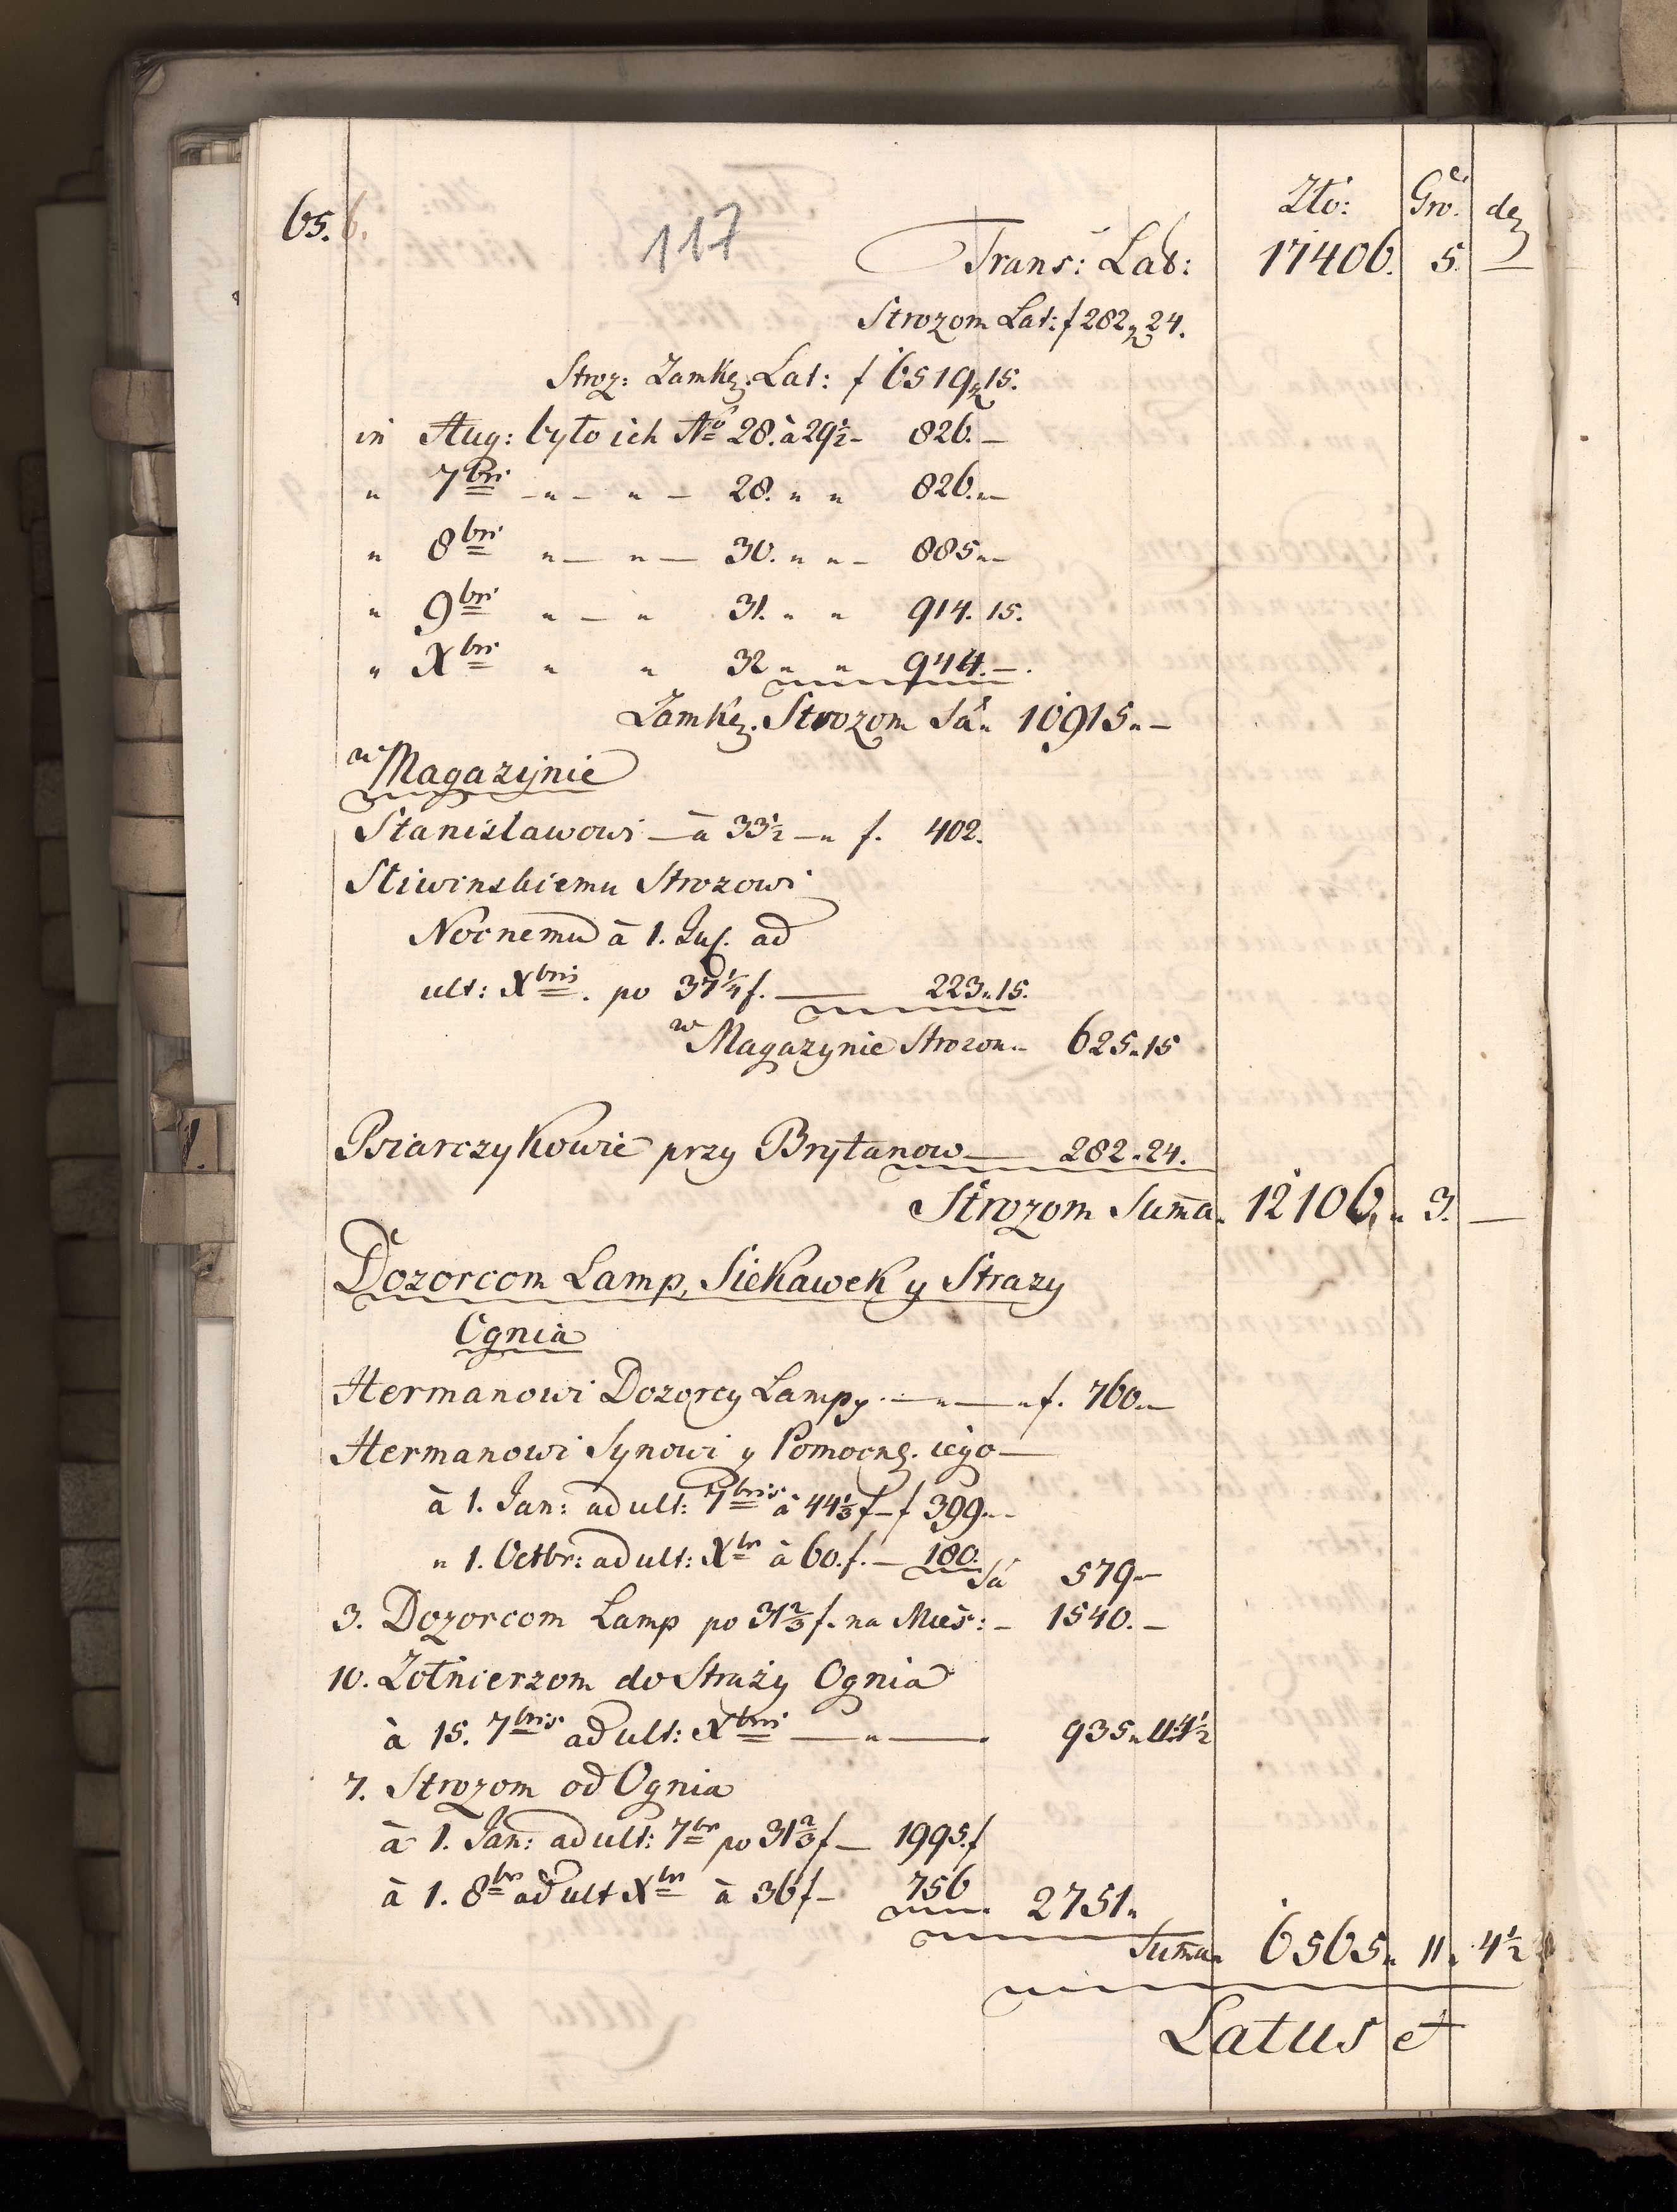 65. 6.
117
Zło: Gro. de
Trans: Lat: 17406. 5. —
Strozom Lat: f 282 „ 24.
Stroz: Zamkę. Lat: f 6519 „ 15.
in Aug: było ich No 28. à 29½ - 826. —
„ 7bri - „ - „ - 28. „ „ 826. „ —
„ 8bri „ — „ — 30. „ „ - 885 „ —
„ 9bri „ — „ 31. „ „ 914. 15.
„ Xbri „ „ 32 „ „ 944. —.
Zamkę. Strozom Sa. „ 10915 „ —
w Magazynie
Stanisławowi — à 33½ — „ f. 402.
Sliwinskiemu Strozowi
Nocnemu à 1. Jul. ad
ult: Xbris. po 37¼ f. — 223 „ 15.
w Magazynie Strozom „ 625 „ 15
Psiarczykowie przy Brytanow — 282 „ 24.
Strozom Suma „ 12106. „ 3. —
Dozorcom Lamp, Siekawek y Strazy
Ognia
Hermanowi Dozorcy Lampy. — „ — „ f. 760. „ —
Hermanowi Synowi y Pomocnę. iego —
à 1. Jan: ad ult: 7bris à 44⅓ f — f 399. „ -
„ 1. Octbr: ad ult: Xbr à 60. f. — 180.
Sa 579 „ —
3. Dozorcom Lamp po 31⅔ f. na Mies: - 1540. —
10. Zołnierzom do Straży Ognia
à 15. 7bris ad ult: Xbris — „ —. 935 „ 11. 4½
7. Strozom od Ognia
à 1. Jan: ad ult: 7br po 31⅔ f — 1995. f
à 1. 8br ad ult Xbr à 36 f — 756
2751 „
Suma „ 6565 „ 11 „ 4½
Latus et